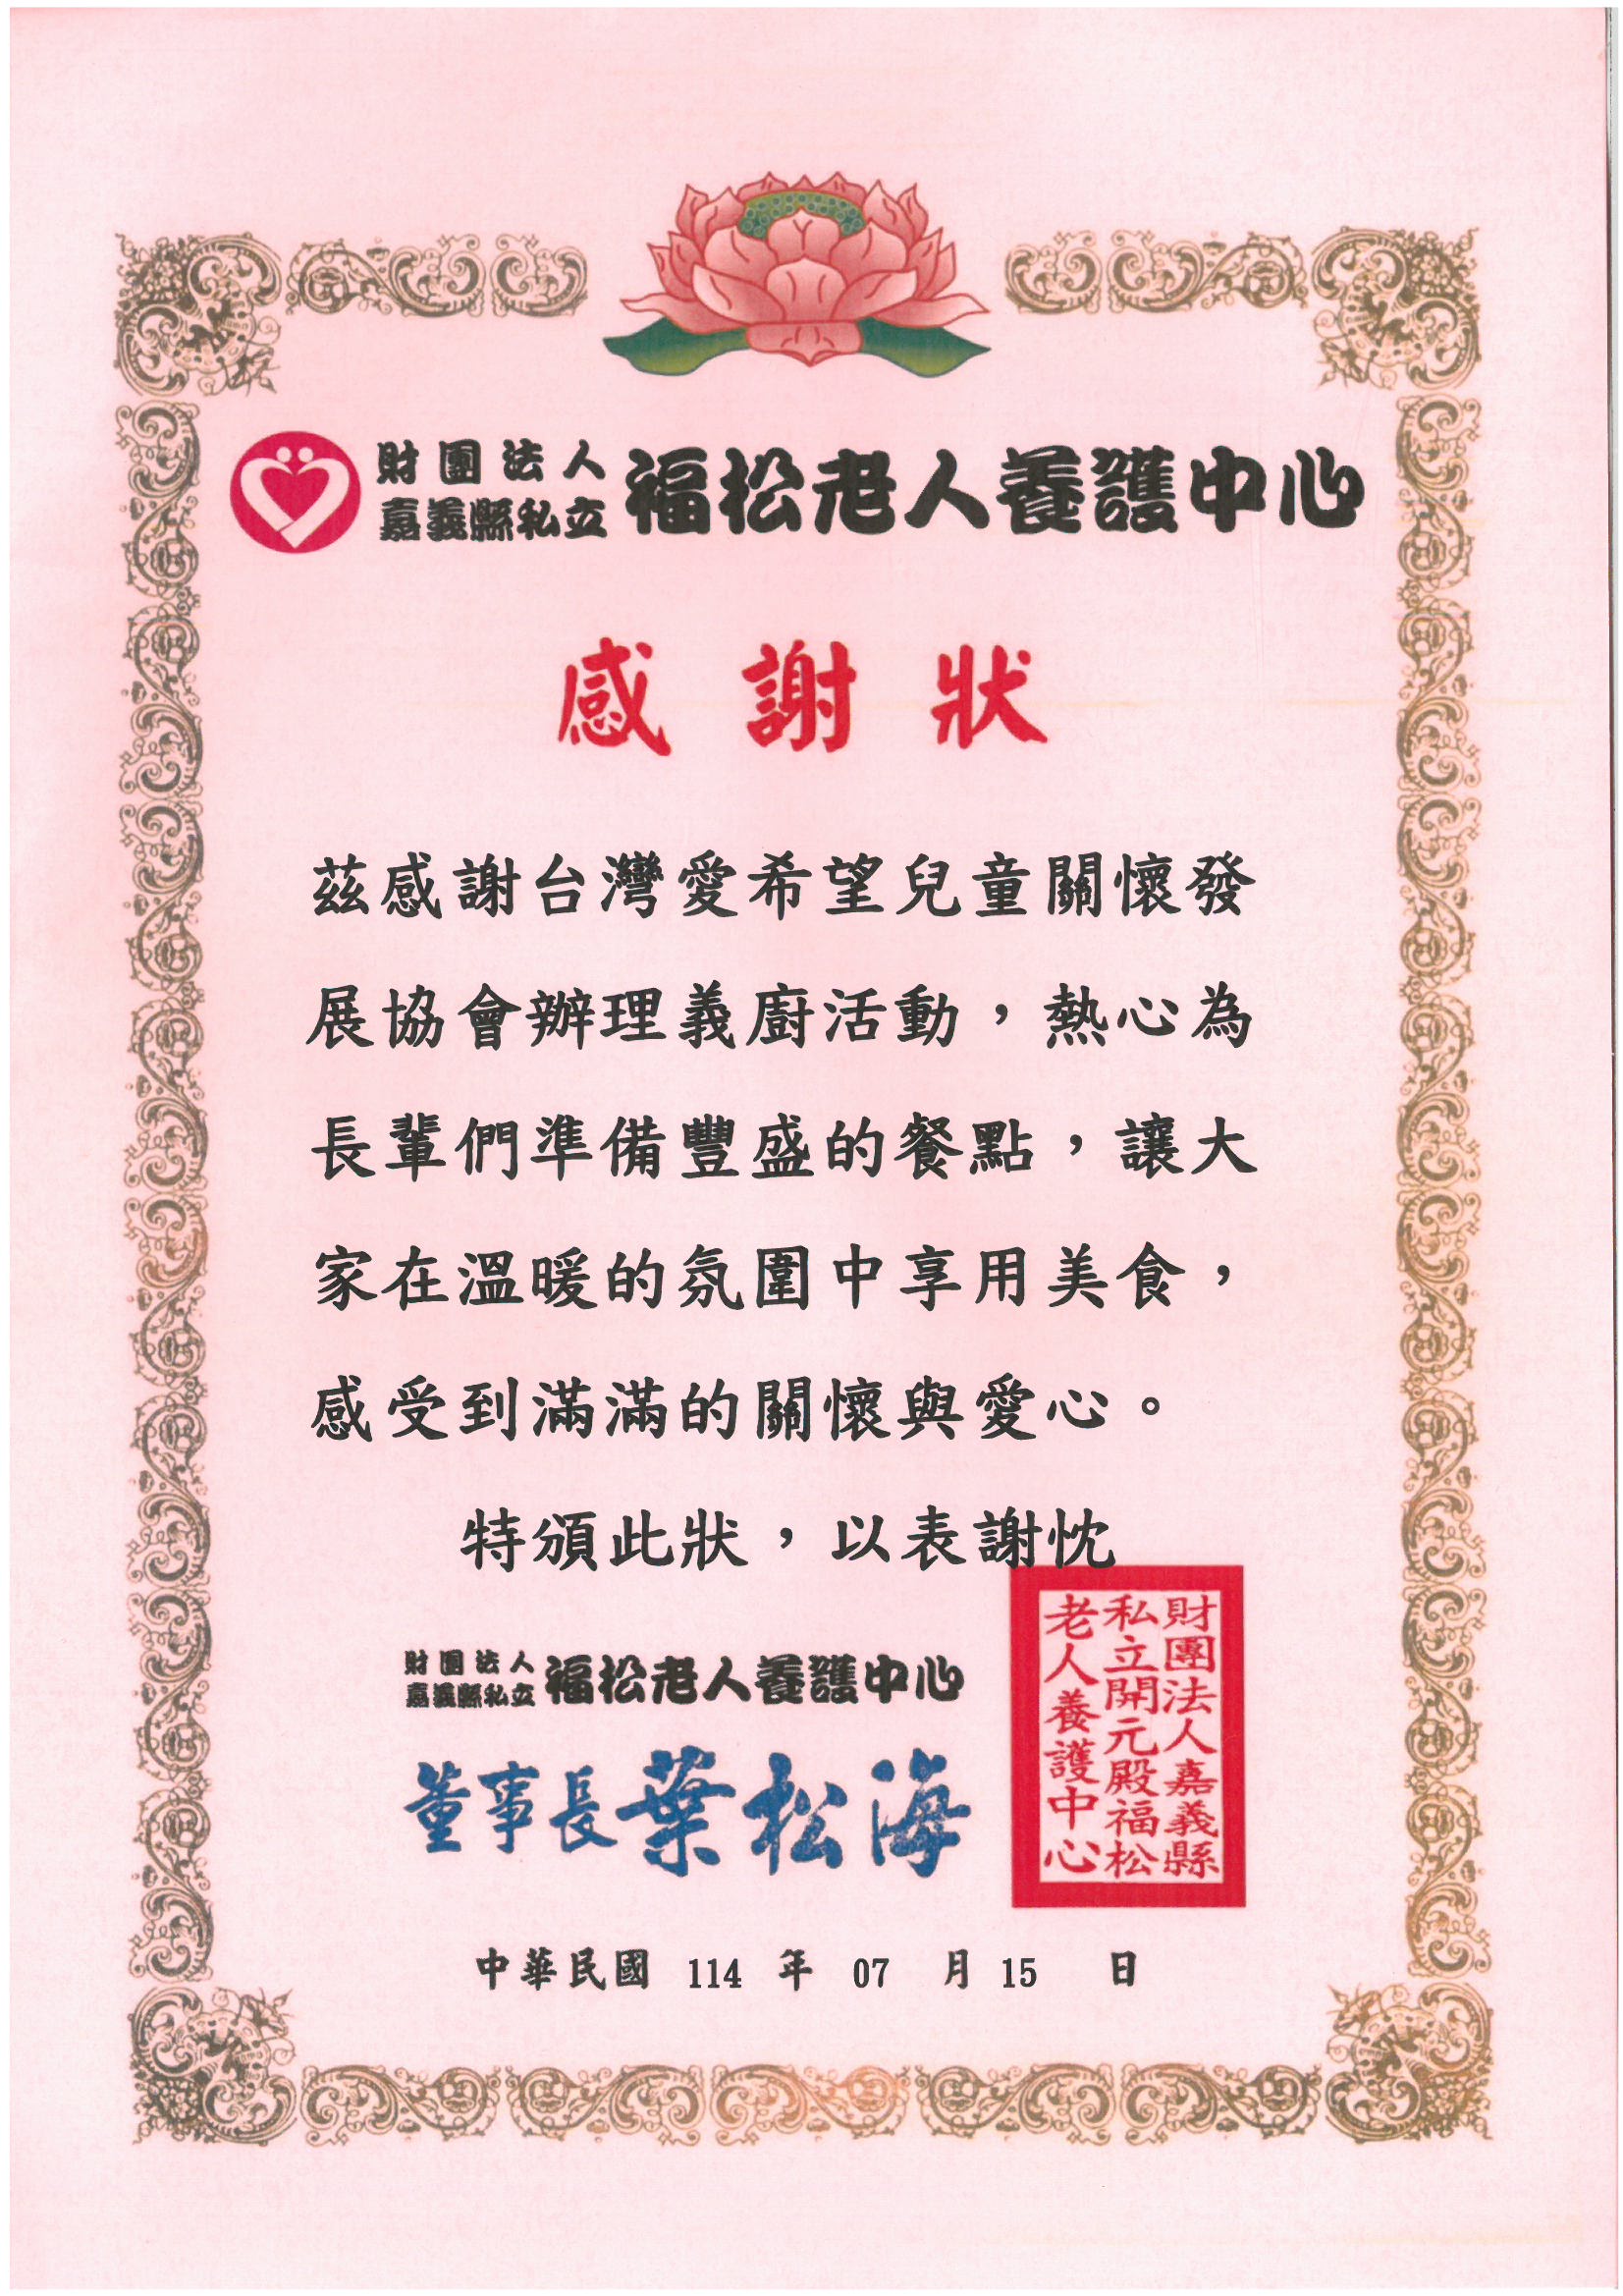 財團法人
嘉義縣私立
福松老人養護中心
感謝狀
茲感謝台灣愛希望兒童關懷發
展協會辦理義廚活動，熱心為
長輩們準備豐盛的餐點，讓大
家在溫暖的氛圍中享用美食，
感受到滿滿的關懷與愛心。
特頒此狀，以表謝忱
財團法人
嘉義縣私立
福松老人養護中心
董事長葉松海
財團法人嘉義縣
私立開元殿福松
老人養護中心
中華民國 114 年 07 月 15 日